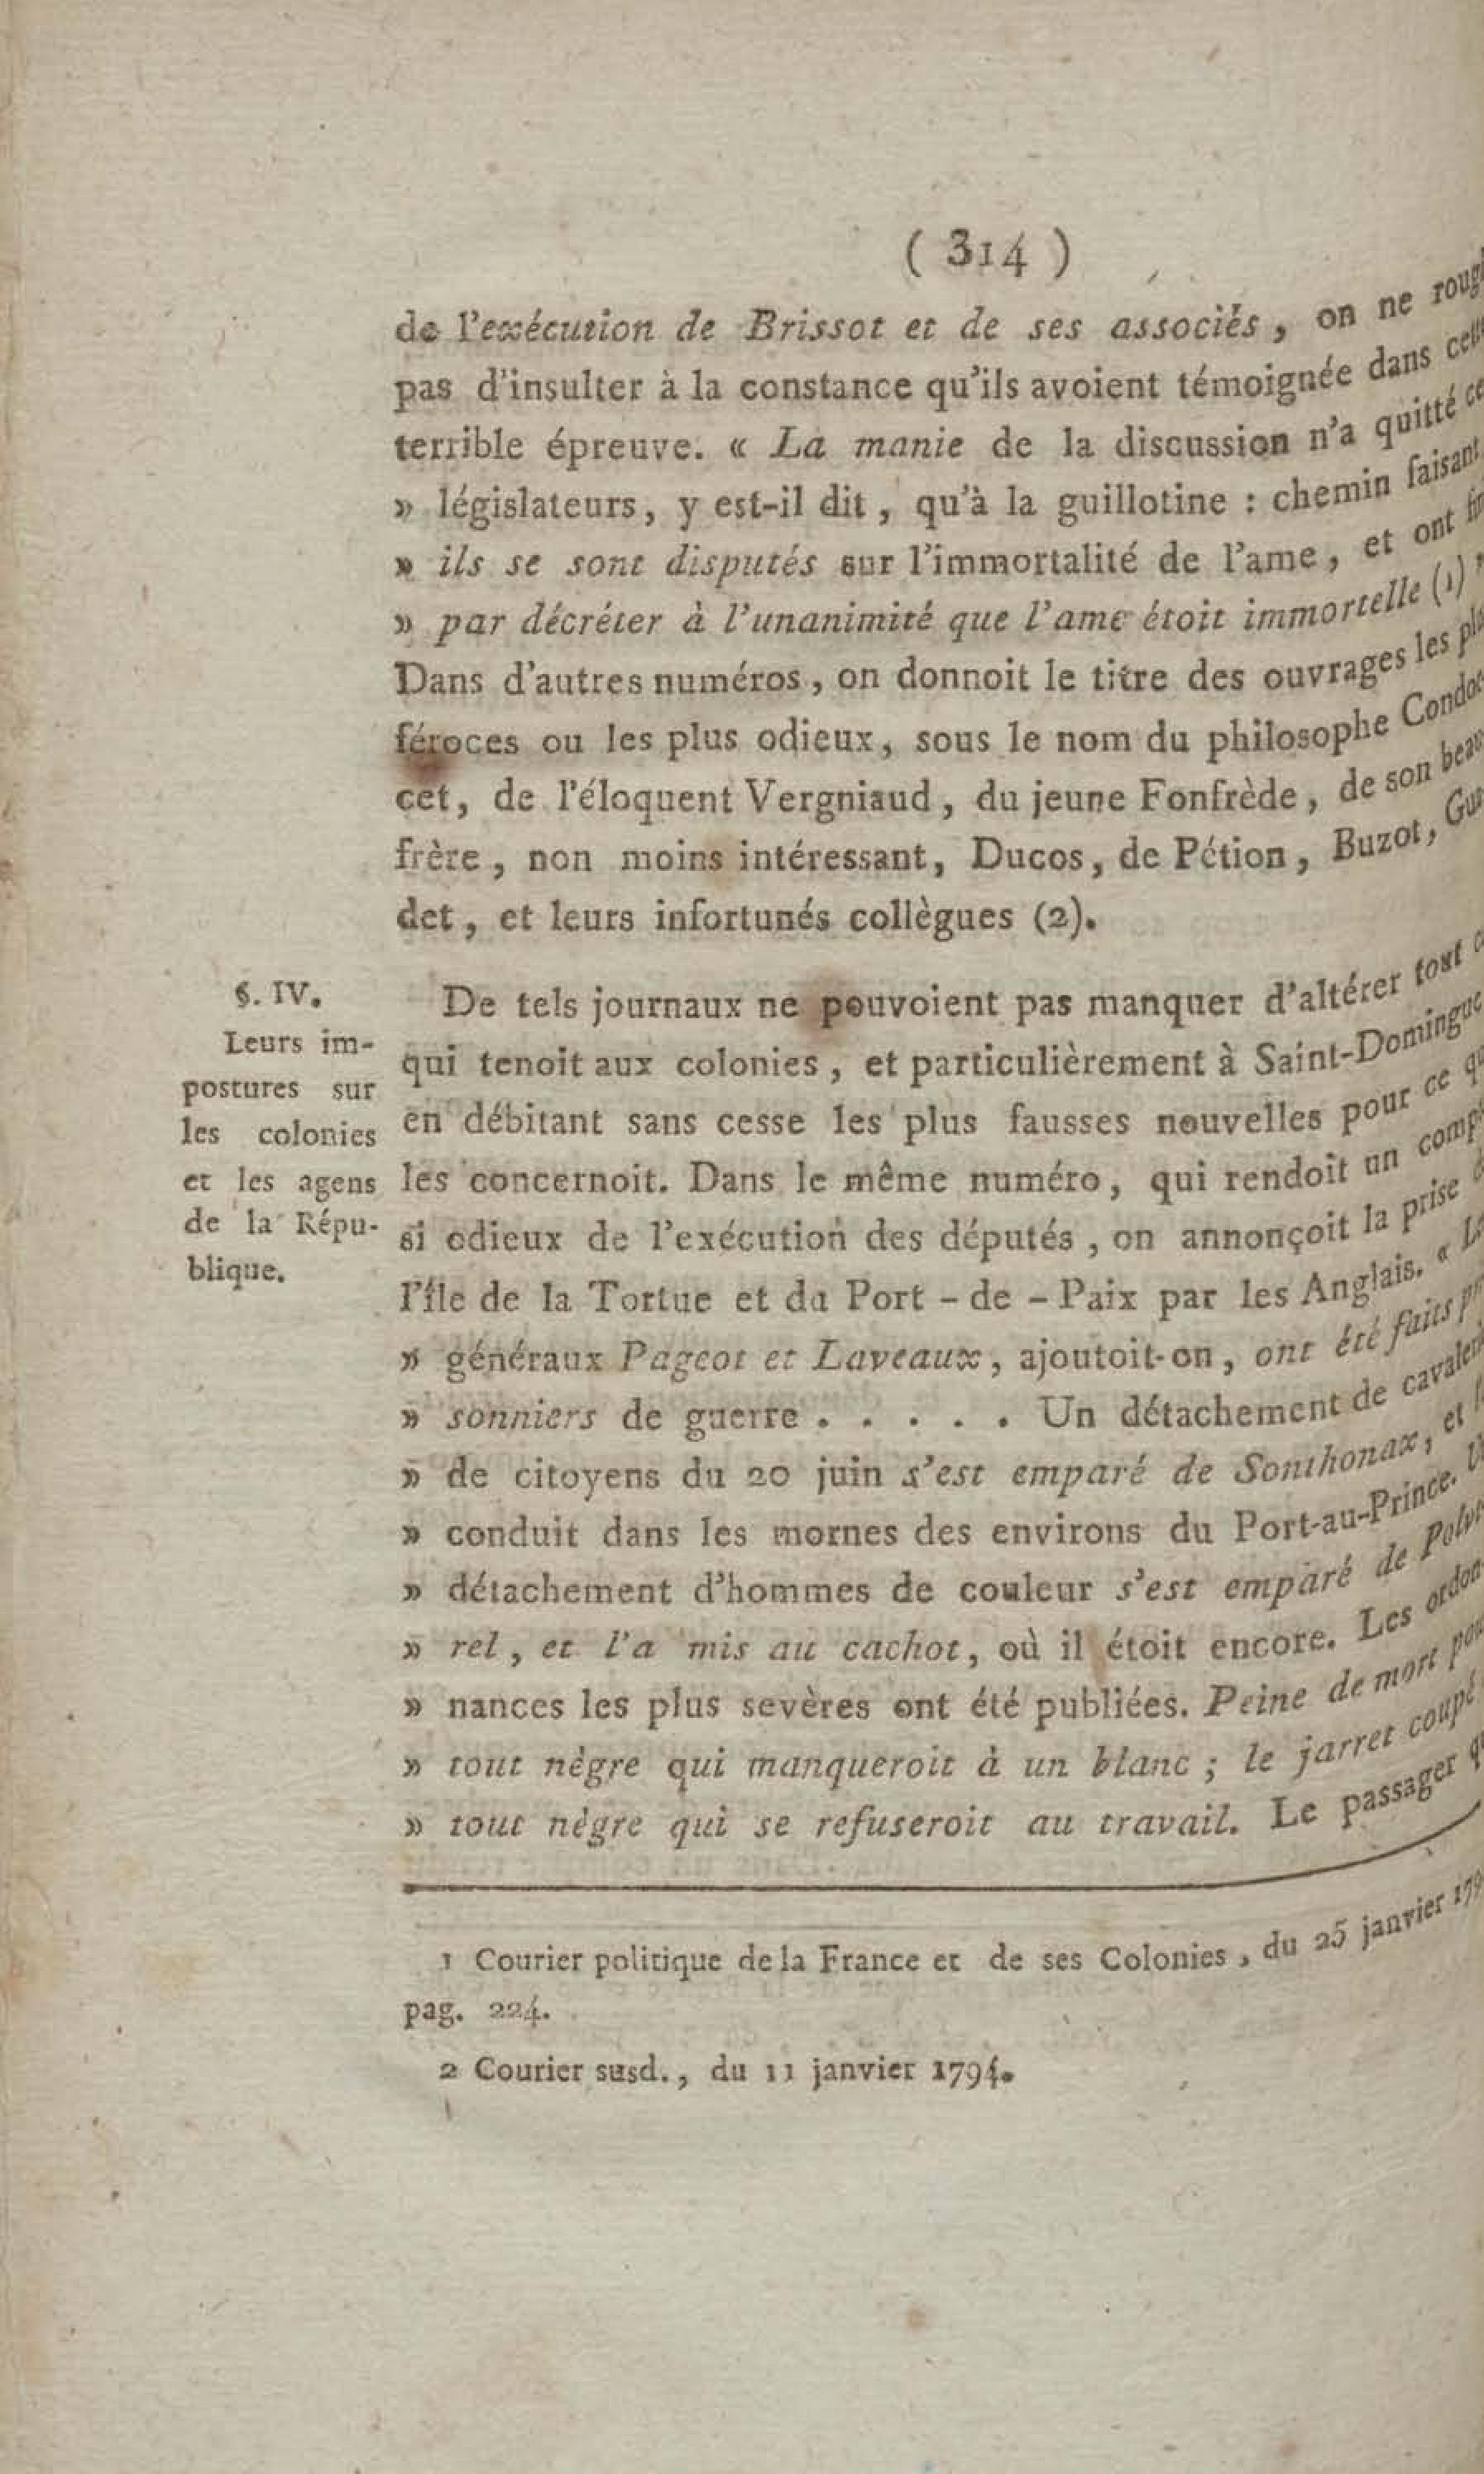 ( 314 )
de l'exécution de Brissot et de ses associés, on ne
pas d'insulter à la constance qu'ils avoient témoignée dans
terrible épreuve. « La manie de la discussion n'a quitté
» législateurs, y est-il dit, qu'à la guillotine : chemin faisant
» ils se sont disputés sur l'immortalité de l'ame, et ont
» par décréter à l'unanimité que l'ame étoit immortelle (1)
Dans d'autres numéros, on donnoit le titre des ouvrages les
féroces ou les plus odieux, sous le nom du philosophe Condor
cet, de l'éloquent Vergniaud, du jeune Fonfrède, de son beau
frère, non moins intéressant, Ducos, de Pétion, Buzot, Gua
det, et leurs infortunés collègues (2).
§. IV.
Leurs im-
postures sur
les colonies
et les agens
de la Répu-
blique.
De tels journaux ne pouvoient pas manquer d'altérer tout
qui tenoit aux colonies, et particulièrement à Saint-Domingue
en débitant sans cesse les plus fausses nouvelles pour ce
les concernoit. Dans le même numéro, qui rendoit un
si odieux de l'exécution des députés, on annonçoit la prise
l'île de la Tortue et du Port-de-Paix par les Anglais. «
» généraux Pageot et Laveaux, ajoutoit-on, ont été faits
» sonniers de guerre . . . . . Un détachement de
» de citoyens du 20 juin s'est emparé de Sonthonax, et
» conduit dans les mornes des environs du Port-au-Prince.
» détachement d'hommes de couleur s'est emparé de Polve
» rel, et l'a mis au cachot, où il étoit encore. Les ordon
» nances les plus sevères ont été publiées. Peine de mort
» tout nègre qui manqueroit à un blanc ; le jarret coupé
» tout nègre qui se refuseroit au travail. Le passager
1 Courier politique de la France et de ses Colonies, du 25 janvier
pag. 224.
2 Courier susd., du 11 janvier 1794.